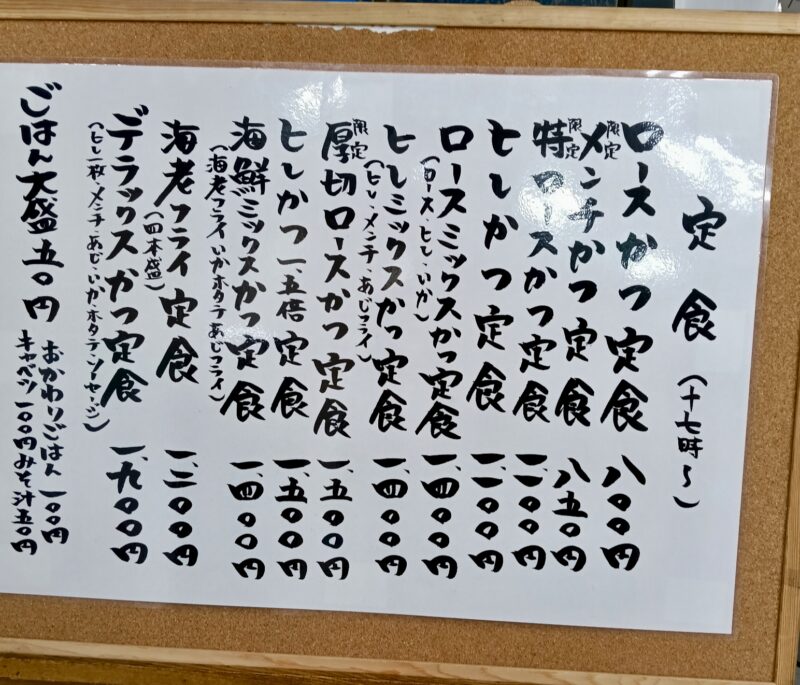 定食(十七時〜)
ロースかつ定食 八〇〇円
限定メンチかつ定食 八五〇円
限定特ロースかつ定食 一、一〇〇円
ヒレかつ定食 一、一〇〇円
ロースミックスかつ定食 一、四〇〇円
(ロース・ヒレ・いか)
ヒレミックスかつ定食 一、四〇〇円
(ヒレ・メンチ・あじフライ)
限定厚切ロースかつ定食 一、五〇〇円
ヒレかつ一、五倍定食 一、五〇〇円
海鮮ミックスかつ定食 一、四〇〇円
(海老フライいかホタテあじフライ)
海老フライ定食 一、三〇〇円
(四本盛)
デラックスかつ定食 一、九〇〇円
(ヒレ一枚・メンチ・あじ・いか・ホタテ・ソーセージ)
ごはん大盛五〇円
おかわりごはん一〇〇円
キャベツ一〇〇円みそ汁五〇円